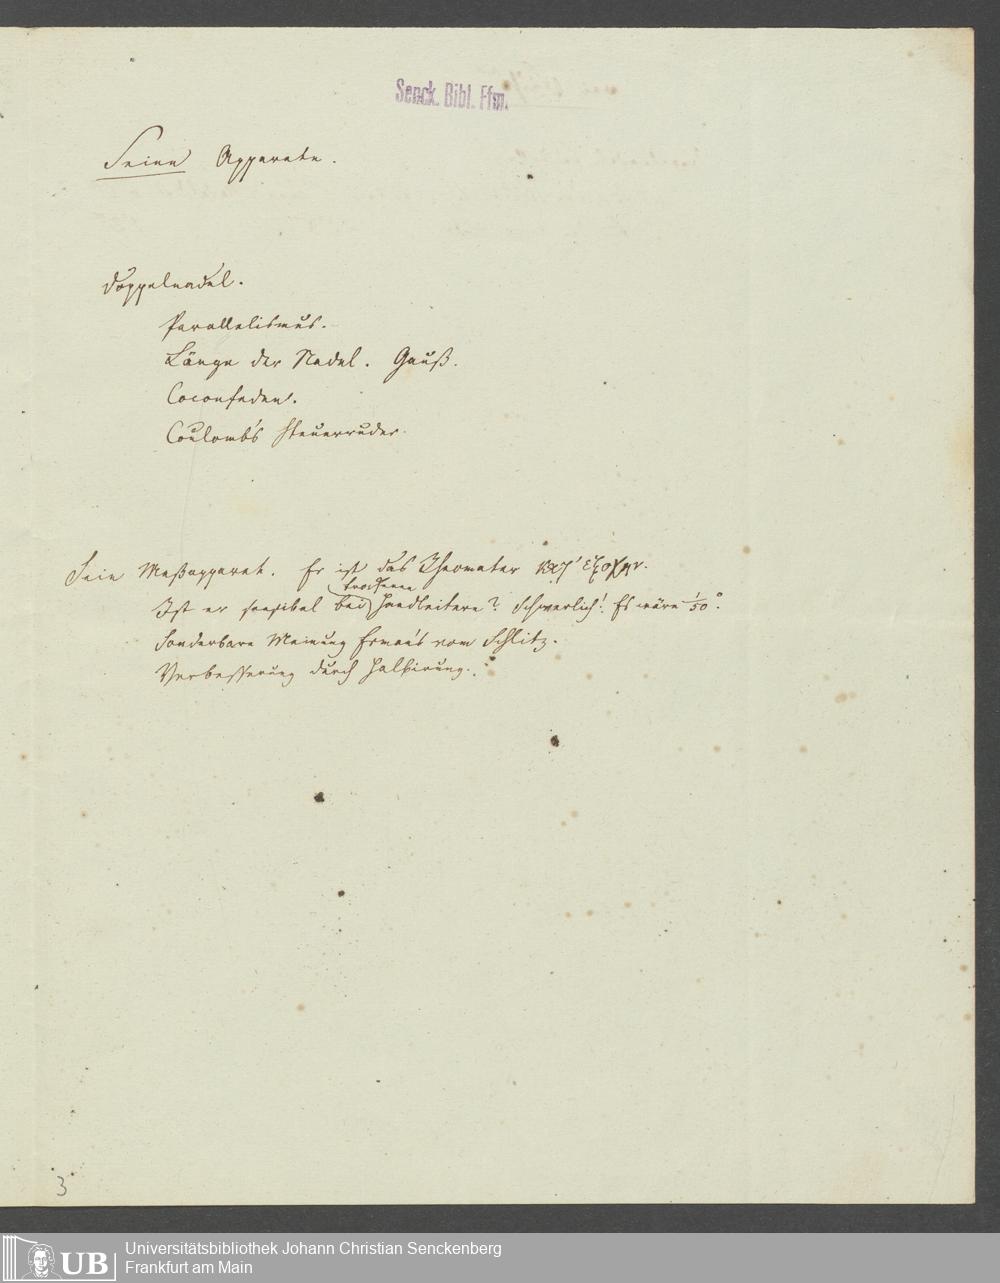 Senck. Bibl. Ffm.
Seine Apparate.
Doppelnadel.
Parallelismus.
Länge der Nadel. Gauß.
Coconfaden.
Coulomb's Steuerruder.
Sein Meßapparat. Er ist das Rheometer κατ' ἐξοχην.
trockenen
Ist er sensibel bei Handleitern? Schwerlich! Es wäre 1/50°.
Sonderbare Meinung Erman's vom Schlitz.
Verbesserung durch Halbirung.
3
UB
Universitätsbibliothek Johann Christian Senckenberg
Frankfurt am Main